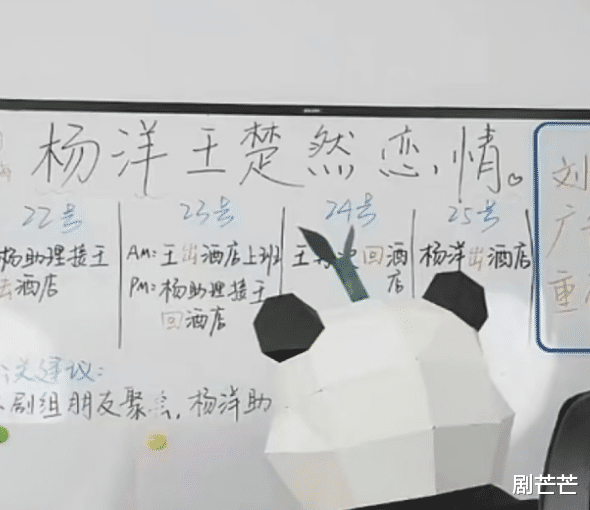 杨洋王楚然恋情。
22号
杨助理接王
去酒店
23号
AM:王出酒店上班
PM:杨助理接王
回酒店
24号
王
回酒
店
25号
杨洋出酒店
刘
广
重
关建议:
剧组朋友聚会,杨洋助
剧芒芒